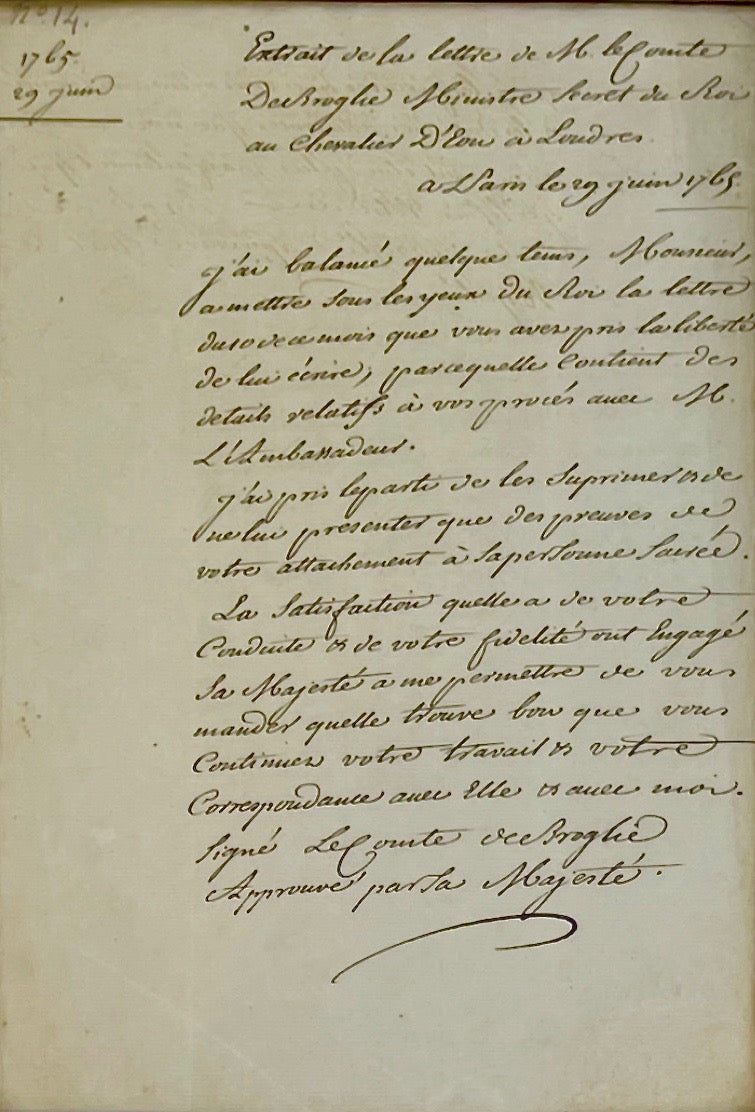 N.º 14.
1765.
29 juin
Extrait de la lettre de M. le Comte
De Broglie Ministre Secret du Roi
au Chevalier D'Eon à Londres.
a Paris le 29 juin 1765.
j'ai balancé quelque tems, Monsieur,
a mettre sous les yeux du Roi la lettre
du 10 de ce mois que vous avez pris la liberté
de lui écrire, parcequelle contient des
details relatifs à vos procés avec M.
L'Ambassadeur.
j'ai pris le parti de les suprimer & de
ne lui presenter que des preuves de
votre attachement à sa personne Sacrée.
La Satisfaction quelle a de votre
Conduite & de votre fidelité ont Engagé
Sa Majesté a me permettre de vous
mander quelle trouve bon que vous
Continuez votre travail & votre
Correspondance avec Elle & avec moi.
Signé Le Comte de Broglie
Approuvé par Sa Majesté.